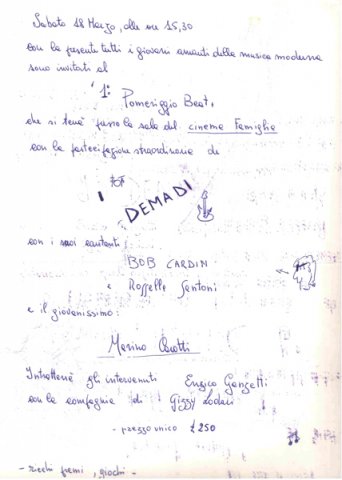 Sabato 18 Marzo, alle ore 15,30
con la presente tutti i giovani amanti della musica moderna
sono invitati al
1°
Pomeriggio Beat,
che si terrà presso la sala del cinema Famiglia
con la partecipazione straordinaria de
I DEMADI
con i suoi cantanti:
BOB CARDIN
e Rossella Santoni
e il giovanissimo:
Marino
Intratterrà gli intervenuti Enrico
con la compagnia di Gizzy
- prezzo unico £ 250
- ricchi premi, giochi -